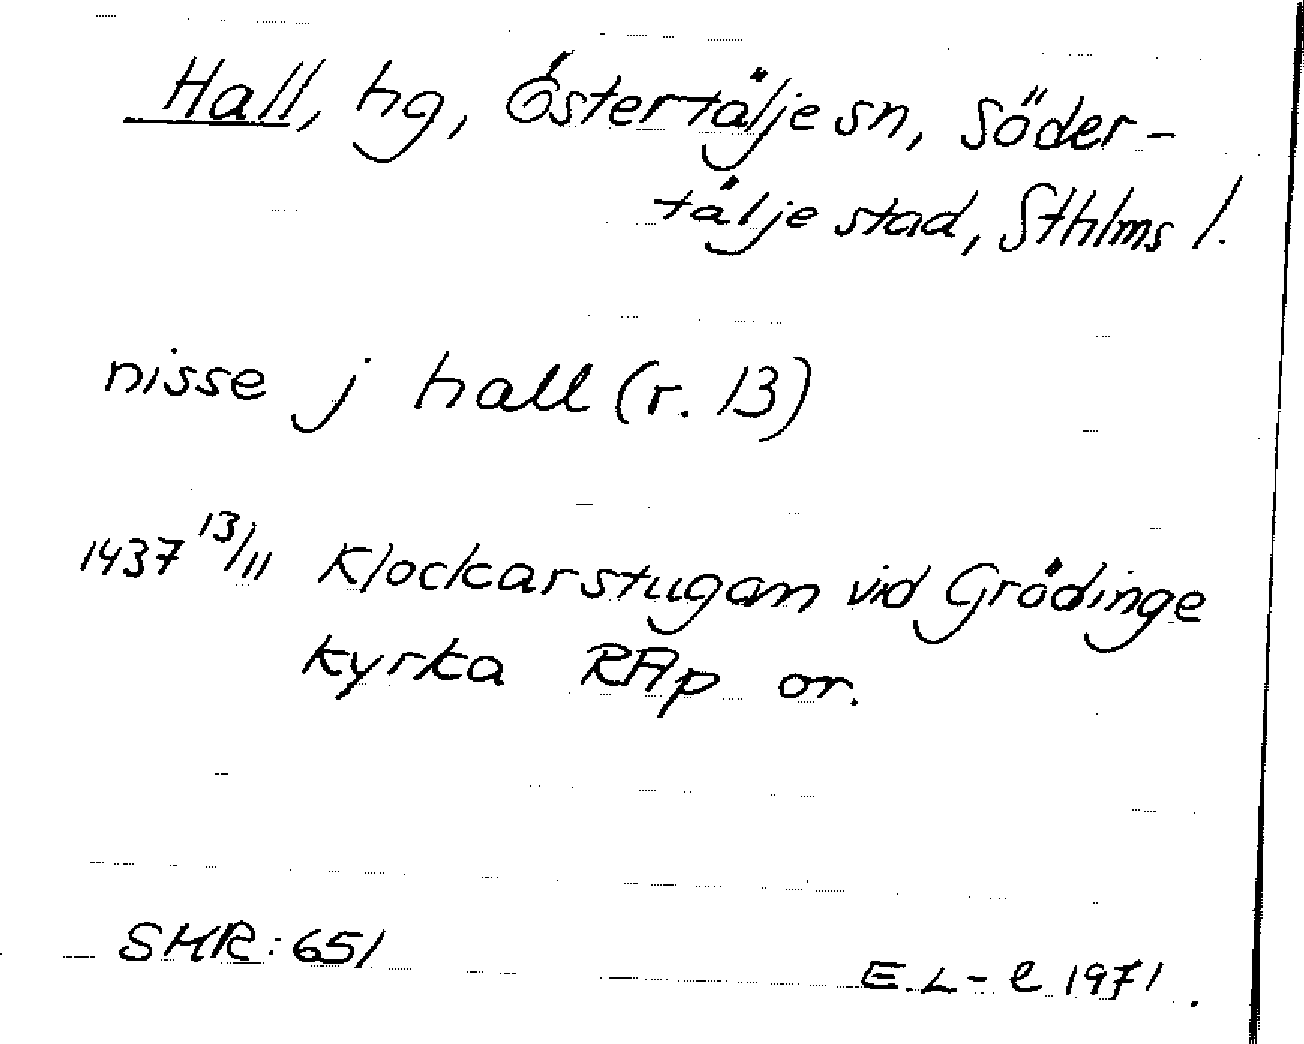 Hall, hg, Östertälje sn, Söder-
tälje stad, Sthlms l.
nisse j hall (r. 13)
1437 13/11 Klockarstugan vid Grödinge
kyrka RAp or.
SHR: 651
E. L-e 1971.